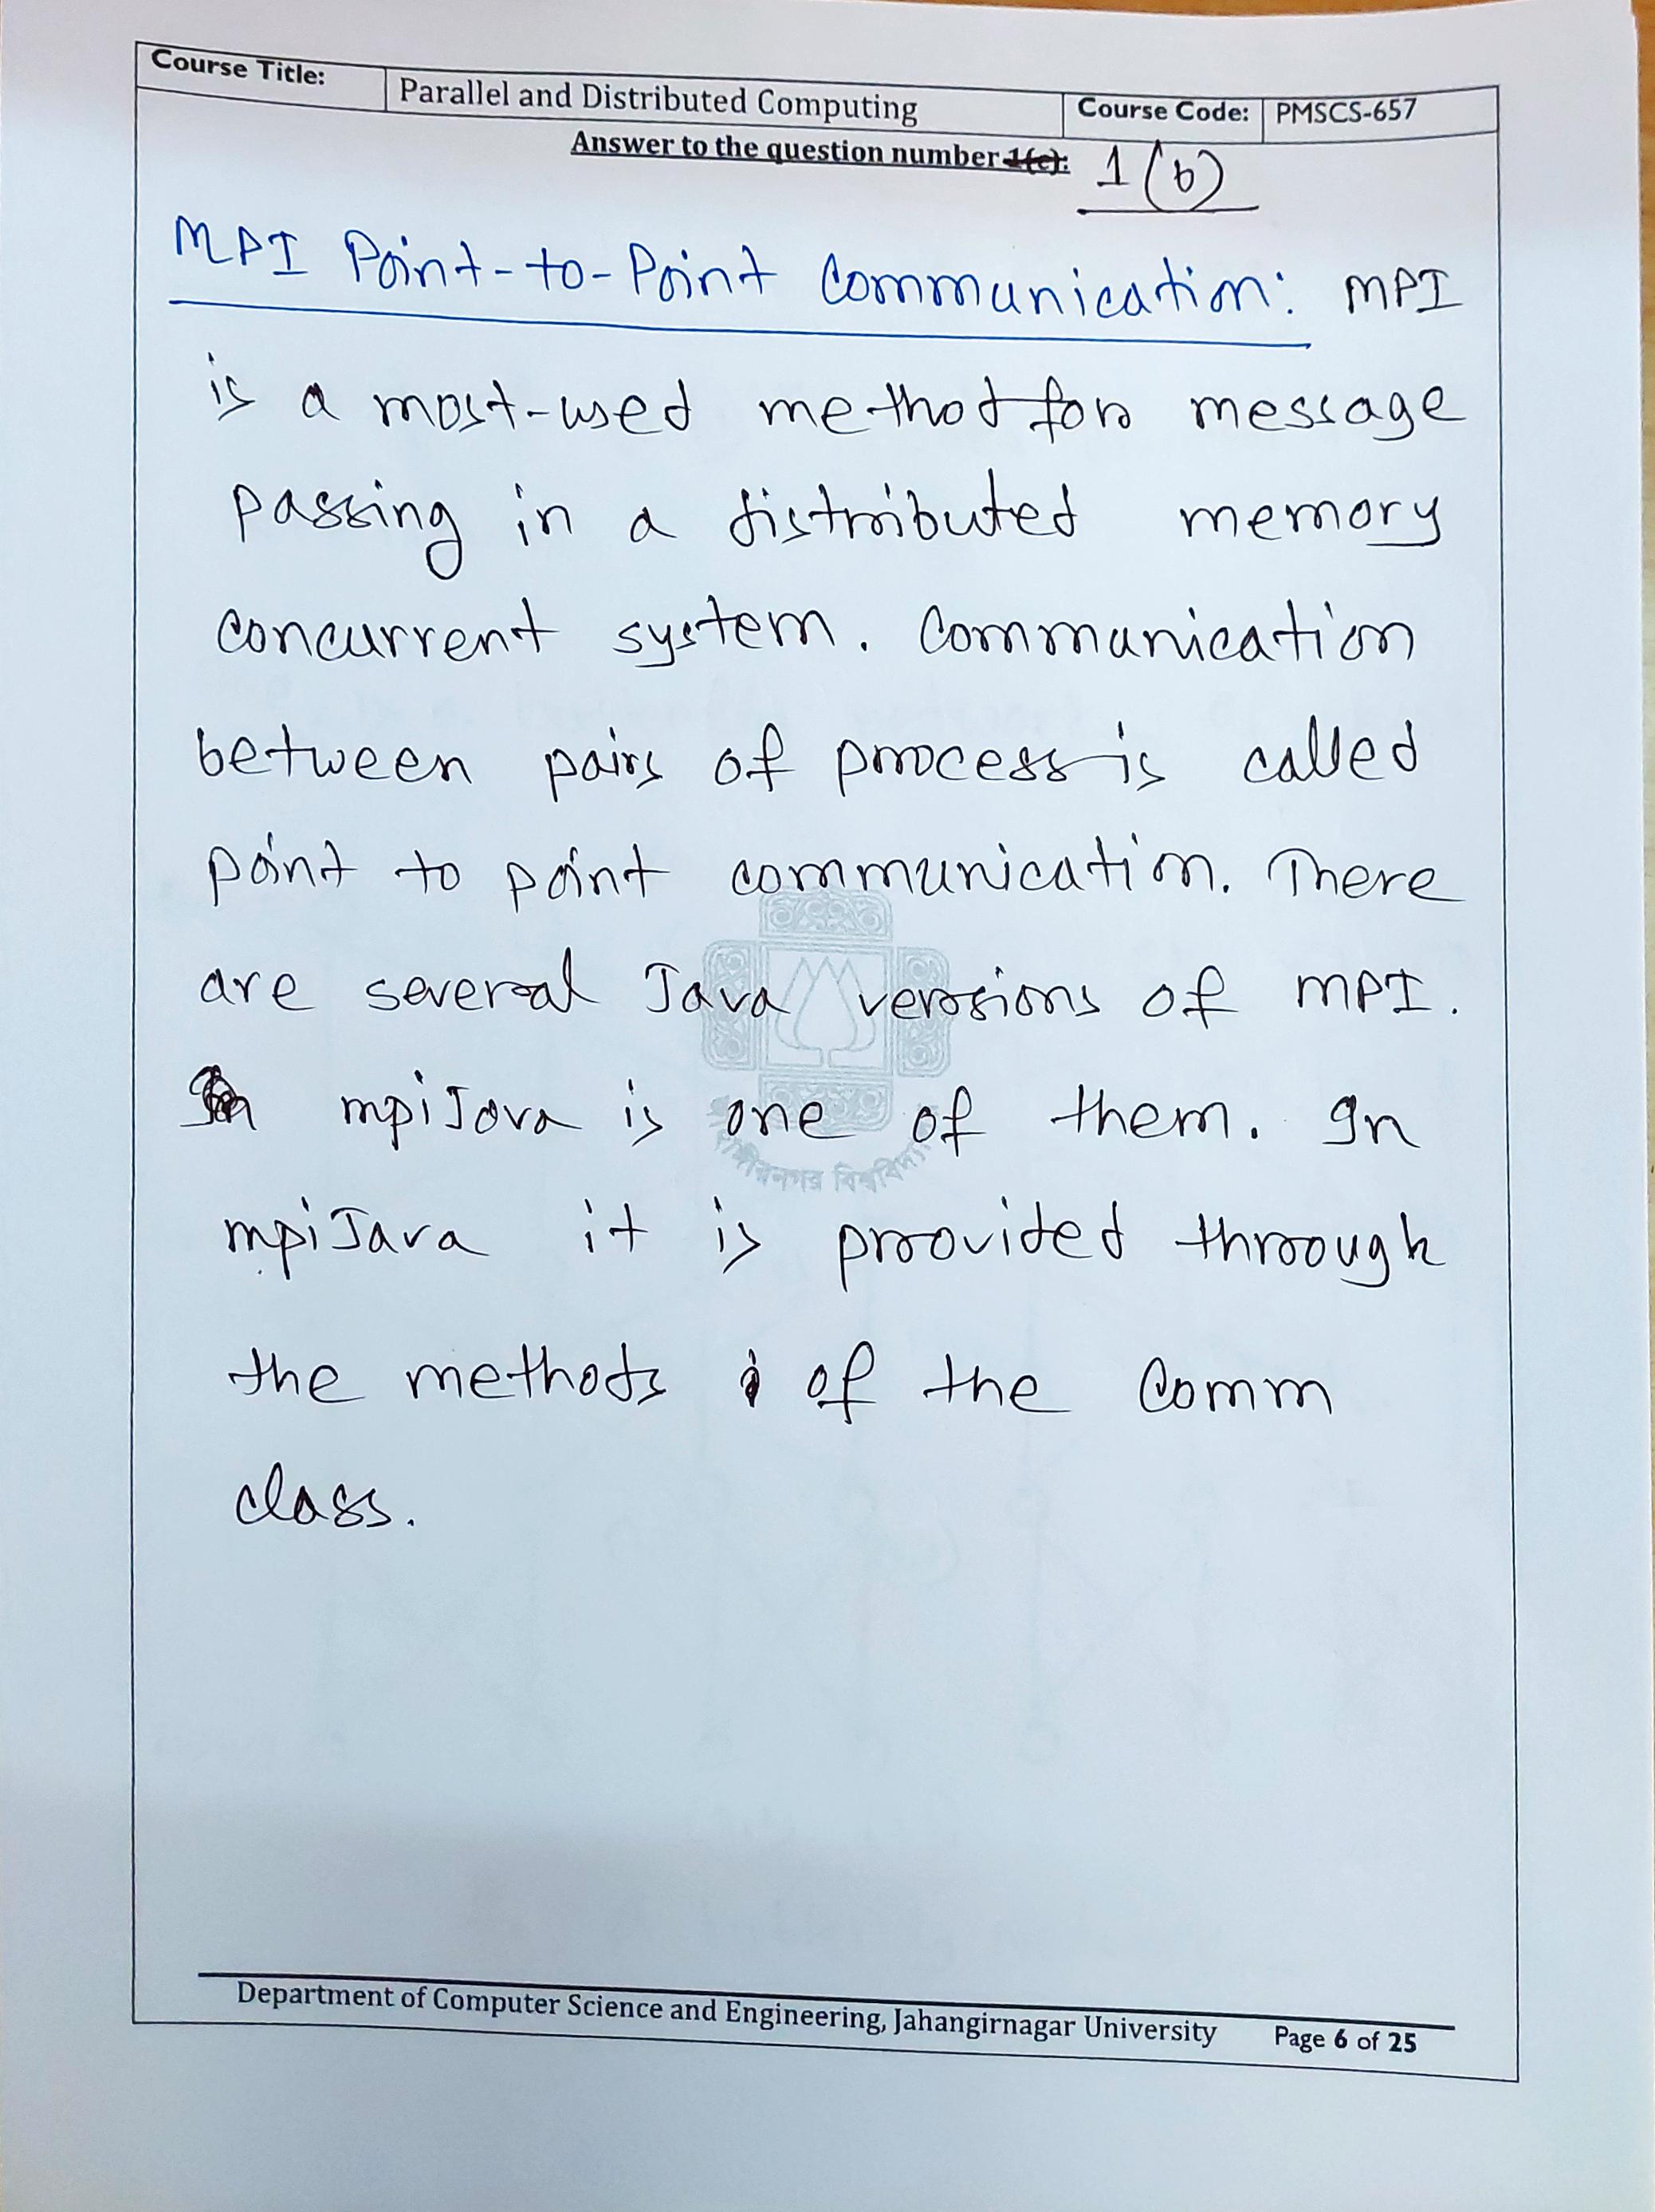 Course Title: Parallel and Distributed Computing Course Code: PMSCS-657
Answer to the question number 1(c): 1(b)
MPI Point-to-Point Communication: MPI
is a most-used method for message
passing in a distributed memory
concurrent system. Communication
between pairs of process is called
point to point communication. There
are several Java versions of MPI.
mpiJava is one of them. In
mpiJava it is provided through
the methods of the Comm
class.
Department of Computer Science and Engineering, Jahangirnagar University Page 6 of 25